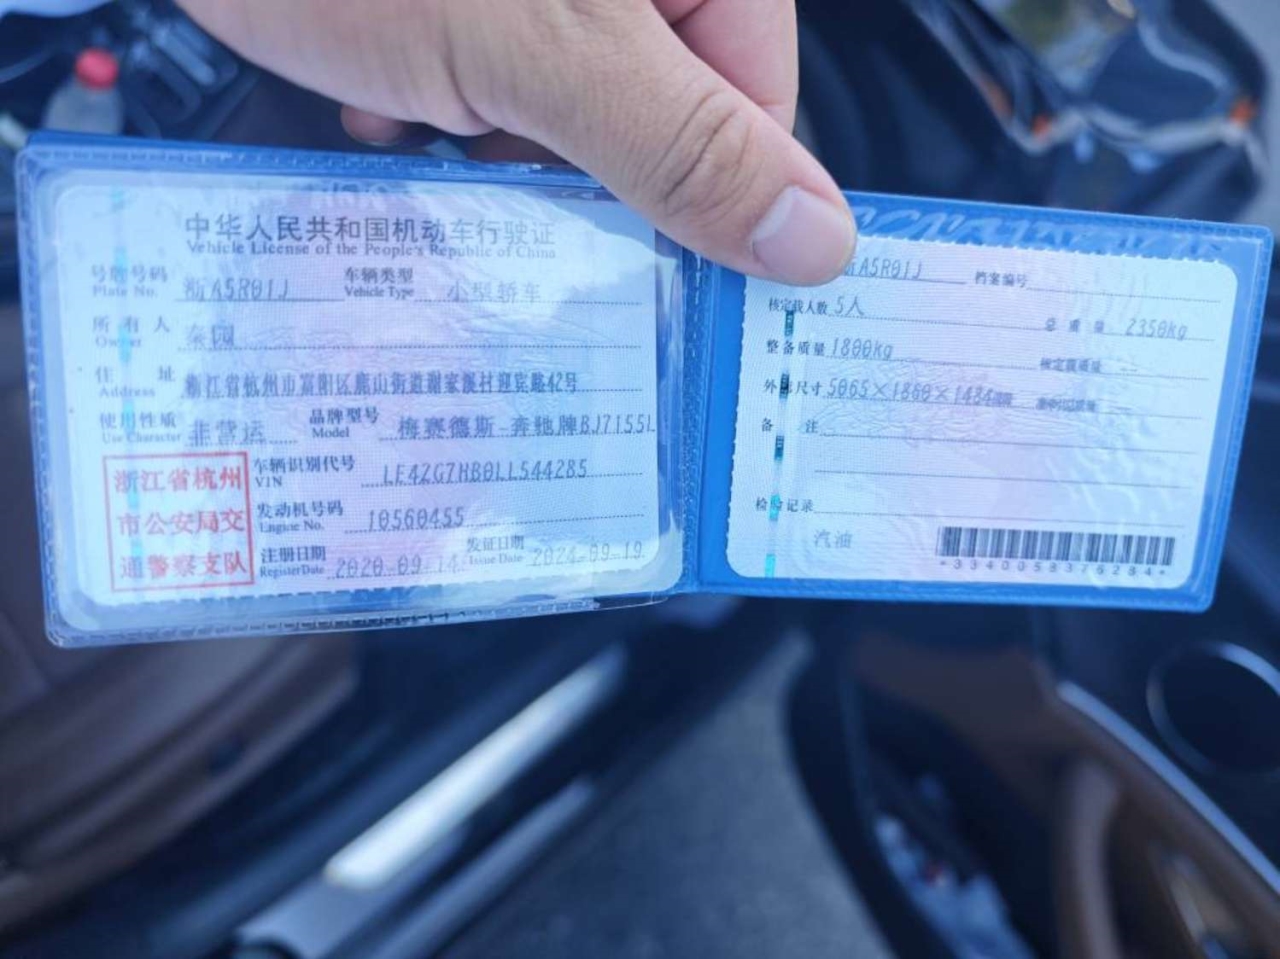 中华人民共和国机动车行驶证
Vehicle License of the People's Republic of China
号牌号码 浙A5R01J 车辆类型 小型轿车
Plate No. Vehicle Type
所有人 秦园
Owner
住址 浙江省杭州市富阳区鹿山街道谢家溪村迎宾路42号
Address
使用性质 非营运 品牌型号 梅赛德斯-奔驰牌BJ7155L
Use Character Model
浙江省杭州
市公安局交
通警察支队
车辆识别代号 LE4ZG7HB0LL544285
VIN
发动机号码 10560455
Engine No.
注册日期 2020-09-14 发证日期 2024-09-19
Register Date Issue Date
A5R01J 档案编号
核定载人数 5人 总质量 2350kg
整备质量 1800kg 核定载质量 --
外廓尺寸 5065×1860×1484mm --
备注
检验记录
汽油
*3340058376284*